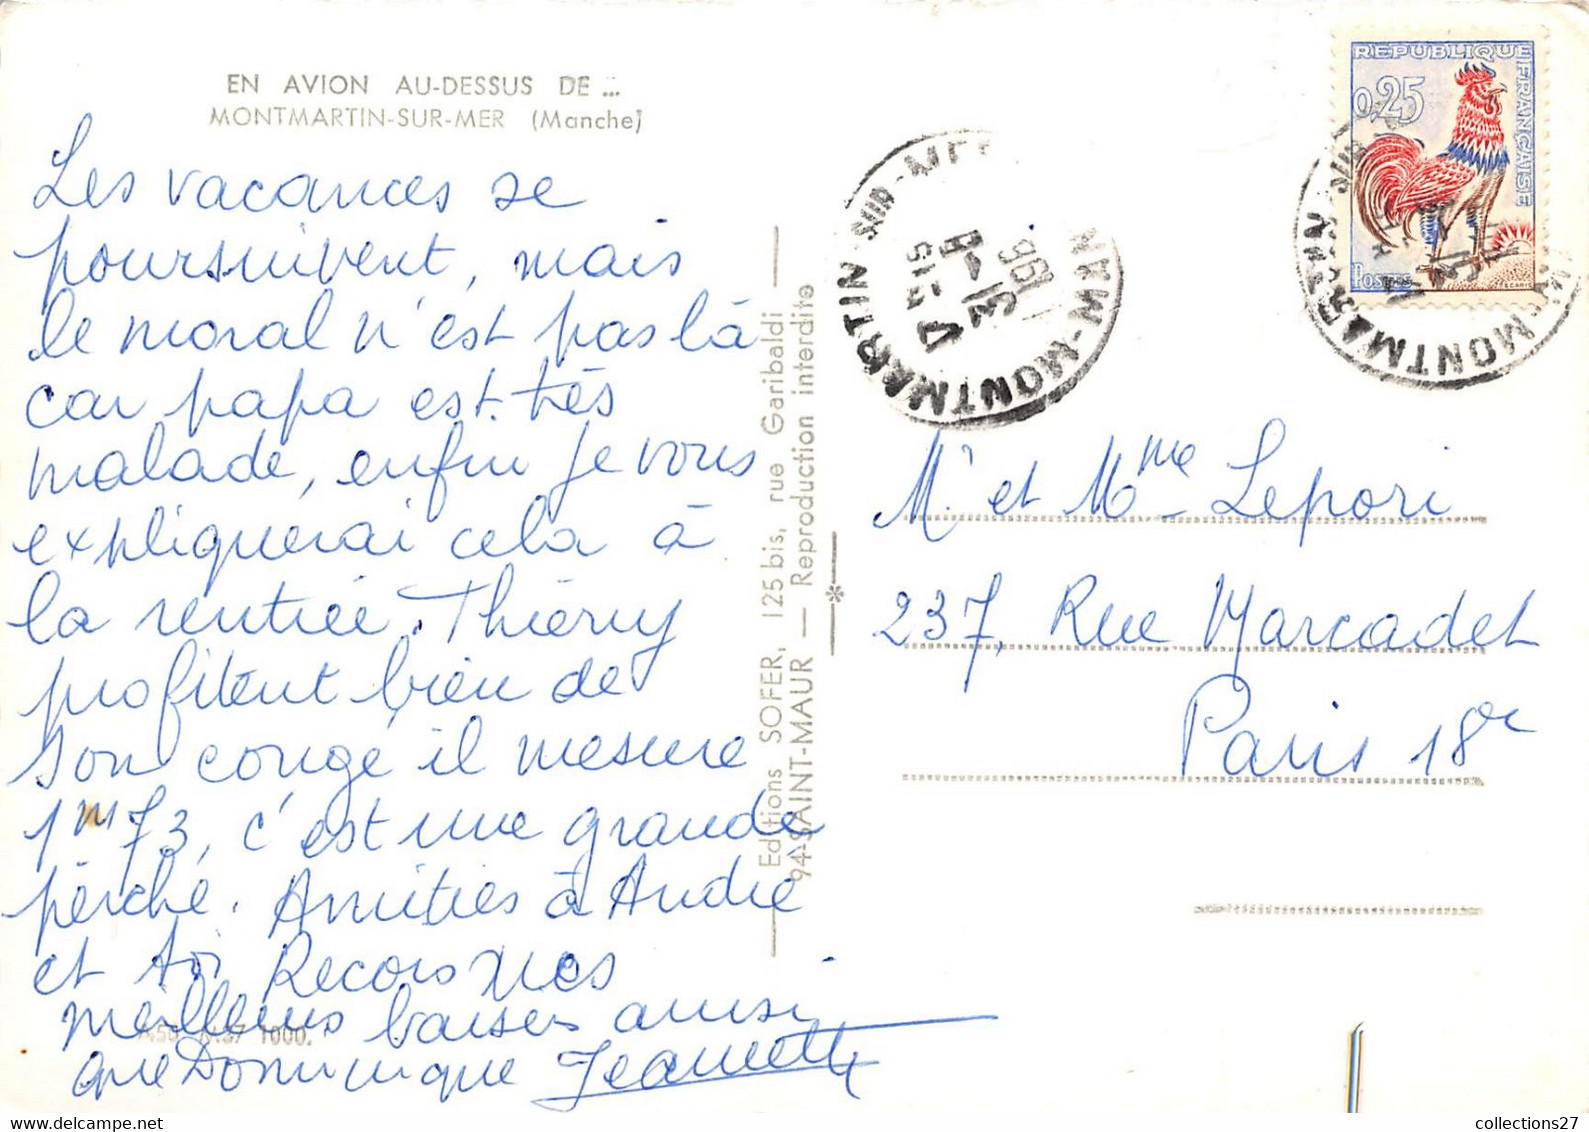 EN AVION AU-DESSUS DE ...
MONTMARTIN-SUR-MER (Manche)
Les vacances se
poursuivent, mais
le moral n'est pas là
car papa est très
malade, enfin je vous
expliquerai cela à
la rentrée. Thierry
profitent bien de
son congé il mesure
1m73, c'est une grande
perche. Amitiés à André
et toi Recois mes
meilleurs baisers ainsi
que Dominique Jeannette
1000.
Editions SOFER, 125 bis, rue Garibaldi
94-SAINT-MAUR — Reproduction interdite
MONTMARTIN SUR-MER
15
13-8
196
REPUBLIQUE FRANÇAISE
0,25
POSTES
DECARIS
MONTMARTIN SUR
Mr et Mme Lepori
237, Rue Marcadet
Paris 18e
collections27